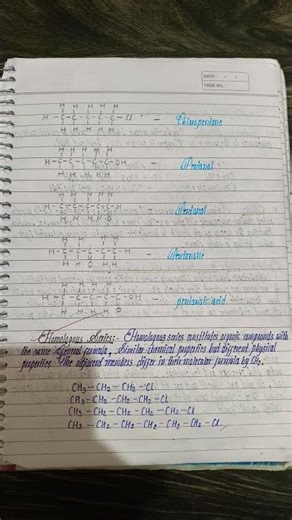 DATE: / /
PAGE NO.:
H H H H H
H - C - C - C - C - C - Cl - Chloropentane
H H H H H
H H H H H
H - C - C - C - C - C - OH - Pentanol
H H H H H
H H H H
- Pentanal
H H H H O
H H H H
- Pentanone
H H O H H
H H H H
- pentanoic acid
Homologous Series:- Homologous series constitutes organic compounds with
the same general formula, similar chemical properties but different physical
properties. The adjacent members differ in their molecular formula by CH₂.
CH₃ - CH₂ - CH₂ - Cl
CH₃ - CH₂ - CH₂ - CH₂ - Cl
CH₃ - CH₂ - CH₂ - CH₂ - CH₂ - Cl
CH₃ - CH₂ - CH₂ - CH₂ - CH₂ - CH₂ - Cl.